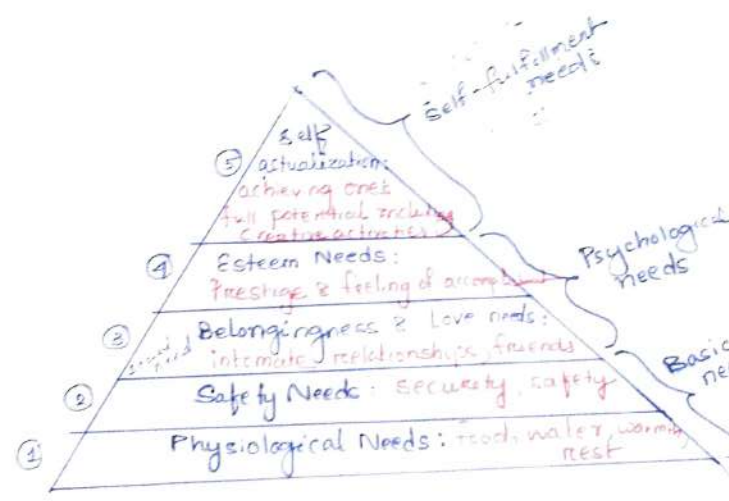 Self-fulfillment
needs
self
⑤ actualization:
achieving ones
full potential including
creative activities
④ Esteem Needs:
Prestige & feeling of accomplishment
Psychological
needs
③ Belongingness & Love needs:
intimate relationships, friends
Basic
② Safety Needs: security, safety
① Physiological Needs: Food, water, warmth,
rest